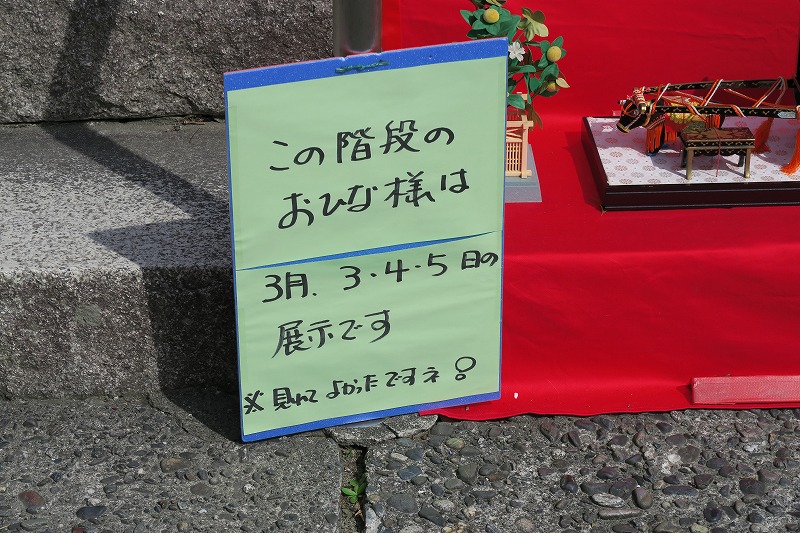 この階段の
おひな様は
3月.3・4・5日の
展示です
※見れてよかったですネ!